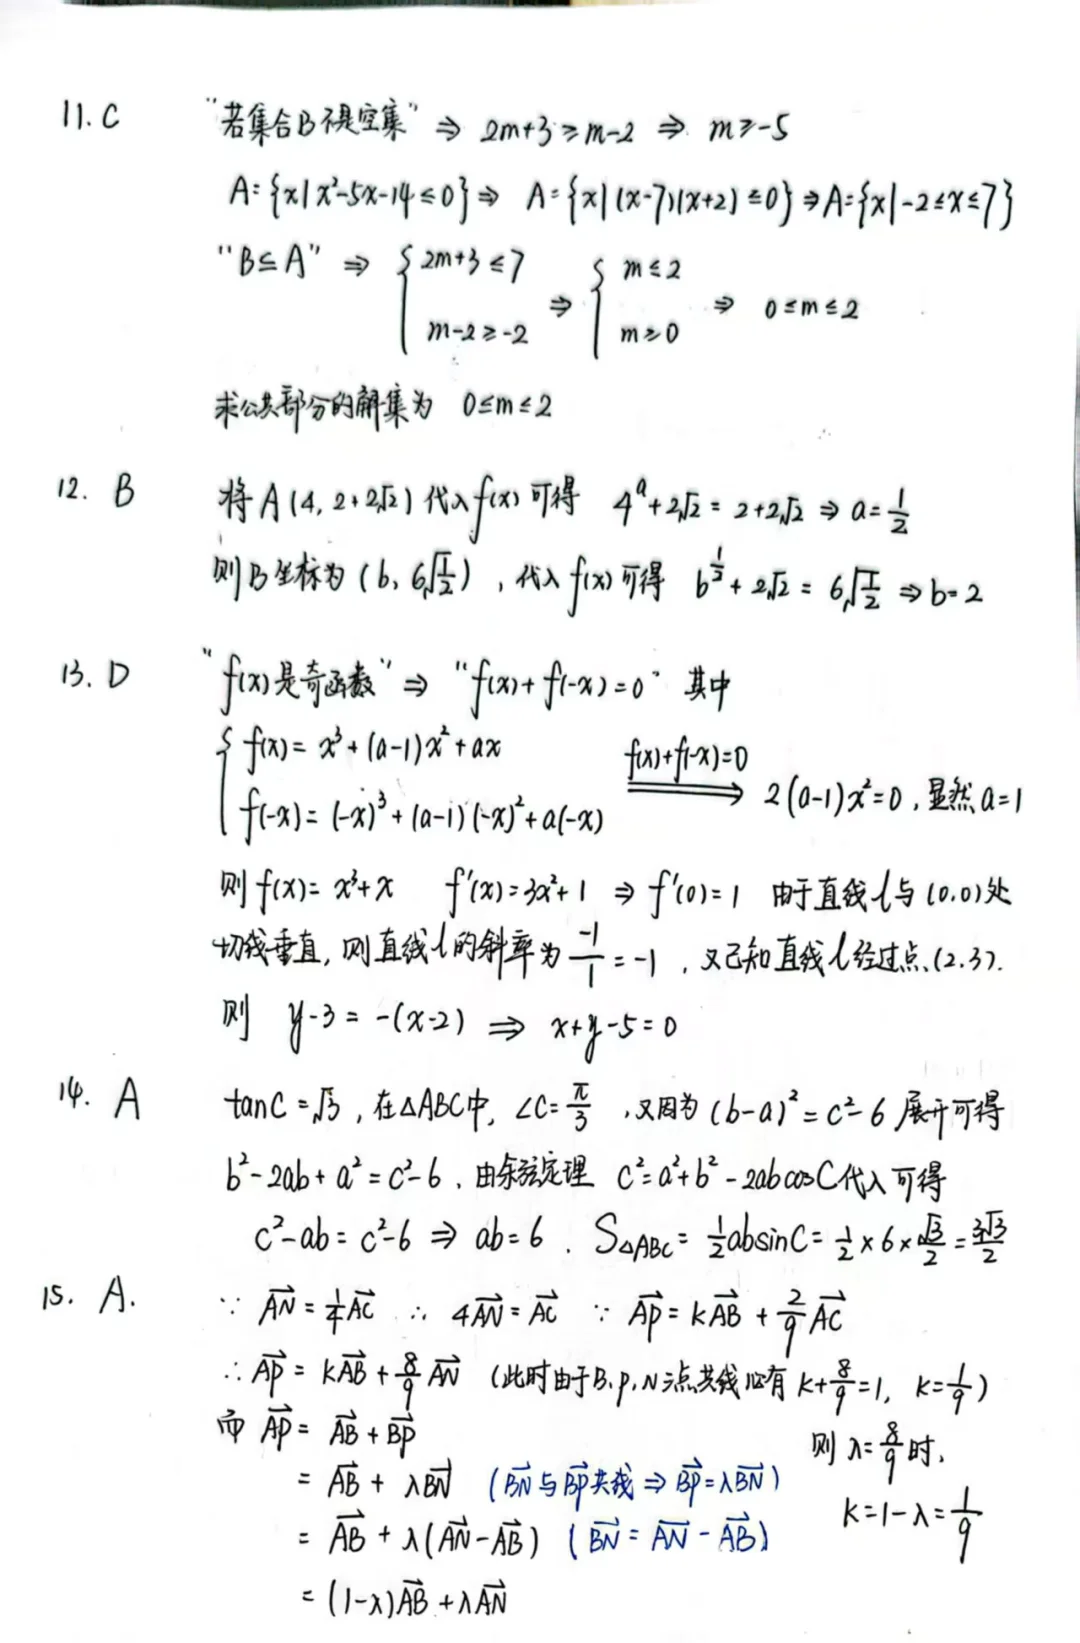 11. C "若集合B不是空集" ⇒ 2m+3≥m-2 ⇒ m≥-5
A={x|x²-5x-14≤0} ⇒ A={x|(x-7)(x+2)≤0} ⇒ A={x|-2≤x≤7}
"B⊆A" ⇒ { 2m+3≤7 ⇒ { m≤2 ⇒ 0≤m≤2
m-2≥-2 m≥0
求公共部分的解集为 0≤m≤2
12. B 将A(4, 2+2√2)代入f(x)可得 4^a+2√2=2+2√2 ⇒ a=1/2
则B坐标为(b, 6√(1/2)), 代入f(x)可得 b^(1/2)+2√2=6√(1/2) ⇒ b=2
13. D "f(x)是奇函数" ⇒ "f(x)+f(-x)=0" 其中
{ f(x)=x³+(a-1)x²+ax
f(x)+f(-x)=0
f(-x)=(-x)³+(a-1)(-x)²+a(-x) ⇒ 2(a-1)x²=0, 显然a=1
则f(x)=x³+x f'(x)=3x²+1 ⇒ f'(0)=1 由于直线l与(0,0)处
切线垂直, 则直线l的斜率为 -1/1=-1, 又已知直线l经过点(2,3).
则 y-3=-(x-2) ⇒ x+y-5=0
14. A tanC=√3, 在△ABC中, ∠C=π/3, 又因为(b-a)²=c²-6展开可得
b²-2ab+a²=c²-6, 由余弦定理 c²=a²+b²-2abcosC代入可得
c²-ab=c²-6 ⇒ ab=6. S△ABC=1/2absinC=1/2×6×√3/2=3√3/2
15. A. ∵ AN⃗=1/4AC⃗ ∴ 4AN⃗=AC⃗ ∵ AP⃗=kAB⃗+2/9AC⃗
∴ AP⃗=kAB⃗+8/9AN⃗ (此时由于B,P,N三点共线必有k+8/9=1, k=1/9)
而 AP⃗=AB⃗+BP⃗
则λ=8/9时,
=AB⃗+λBN⃗ (BN⃗与BP⃗共线 ⇒ BP⃗=λBN⃗)
k=1-λ=1/9
=AB⃗+λ(AN⃗-AB⃗) (BN⃗=AN⃗-AB⃗)
=(1-λ)AB⃗+λAN⃗